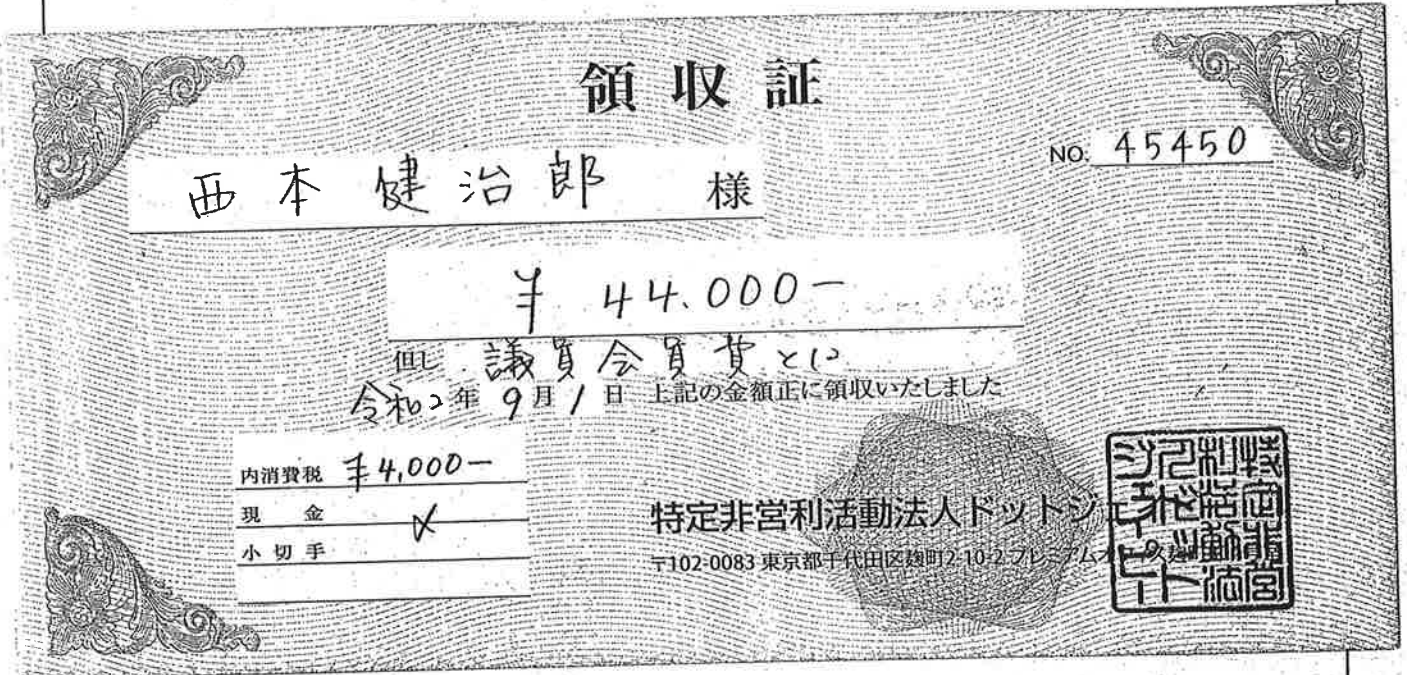 領収証
NO. 45450
西本 健治郎 様
¥ 44.000-
但し 議員会員費とし
令和2年 9月 1日 上記の金額正に領収いたしました
内消費税 ¥4,000-
現金
小切手
特定非営利活動法人ドットジェイピー
〒102-0083 東京都千代田区麹町2-10-2 プレミアム
特定非営利活動法人ドットジェイピー